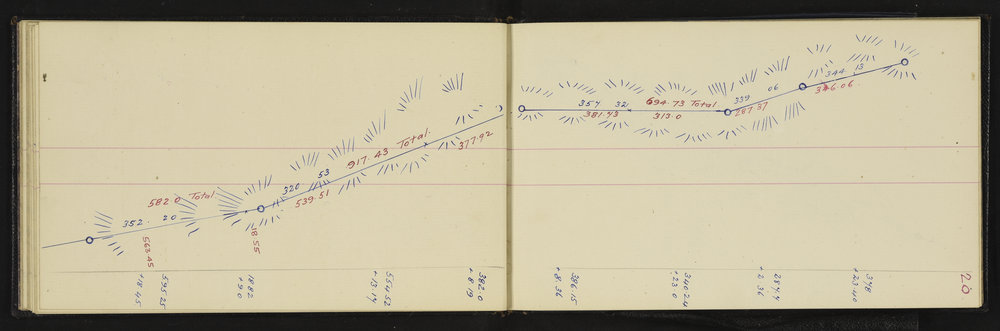 582.0 Total
352. 20
563.45
18.55
320 53
539.51
917.43 Total.
377.92
357 32
381.43
694.73 Total
313.0
339 06
287.37
344 13
346.06
595.25
+18.45
18.82
+9.0
554.52
+13.14
382.0
+8.19
386.15
+8.36
340.24
+23.0
284.4
+2.36
348
+23.40
20